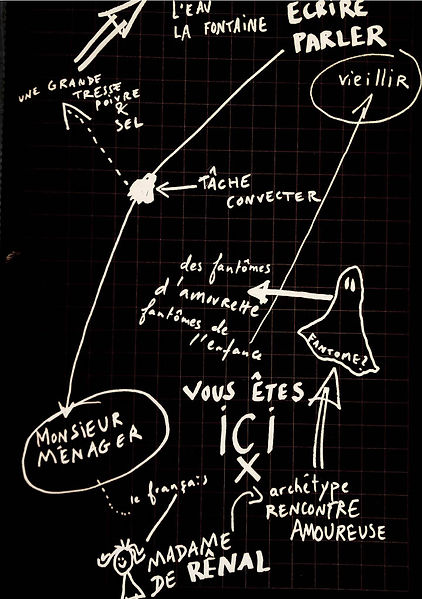 L'EAU
LA FONTAINE
ECRIRE
PARLER
VIEILLIR
UNE GRANDE
TRESSE
POIVRE
&
SEL
TÂCHE
CONVECTER
des fantômes
d'amourette
fantômes de
l'enfance
FANTOME?
VOUS ÊTES
ICI
X
MONSIEUR
MÉNAGER
le français
archêtype
RENCONTRE
AMOUREUSE
MADAME
DE RÊNAL